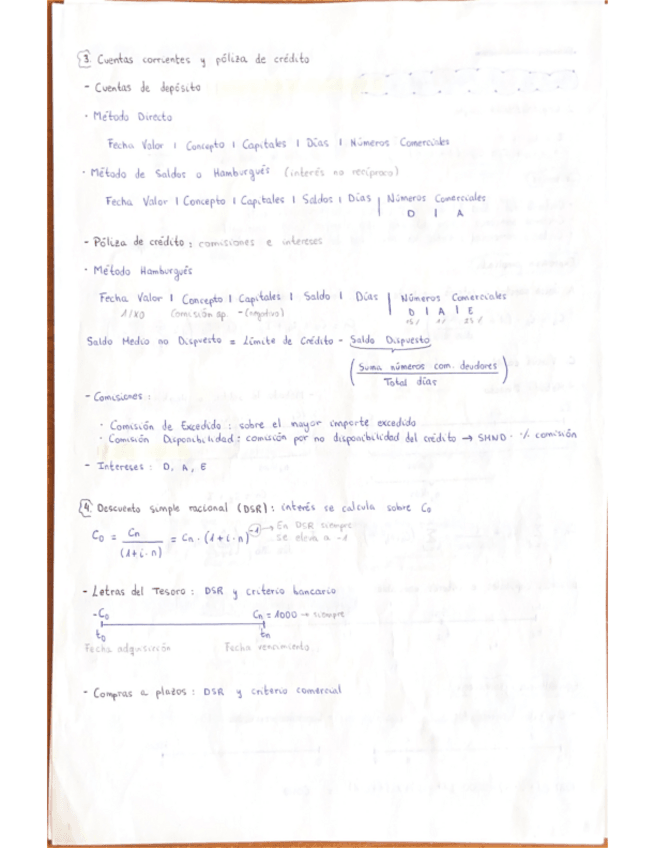 3. Cuentas corrientes y póliza de crédito
- Cuentas de depósito
· Método Directo
Fecha Valor | Concepto | Capitales | Días | Números Comerciales
· Método de Saldos o Hamburgués (interés no recíproco)
Fecha Valor | Concepto | Capitales | Saldos | Días | Números Comerciales
D | A
- Póliza de crédito: comisiones e intereses
· Método Hamburgués
Fecha Valor | Concepto | Capitales | Saldo | Días | Números Comerciales
D | A | E
Comisión - (negativo)
Saldo Medio no Dispuesto = Límite de Crédito - Saldo Dispuesto
(Suma números com. deudores
Total días)
- Comisiones:
· Comisión de Excedido: sobre el mayor importe excedido
· Comisión Disponibilidad: comisión por no disponibilidad del crédito → SMND · % comisión
- Intereses: D, A, E
4. Descuento simple racional (DSR): interés se calcula sobre C₀
C₀ = Cn / (1+i·n) = Cn · (1+i·n)⁻¹ → En DSR siempre
se eleva a -1
- Letras del Tesoro: DSR y criterio bancario
-C₀ Cn = 1000 → siempre
t₀ tn
Fecha adquisición Fecha vencimiento
- Compras a plazos: DSR y criterio comercial